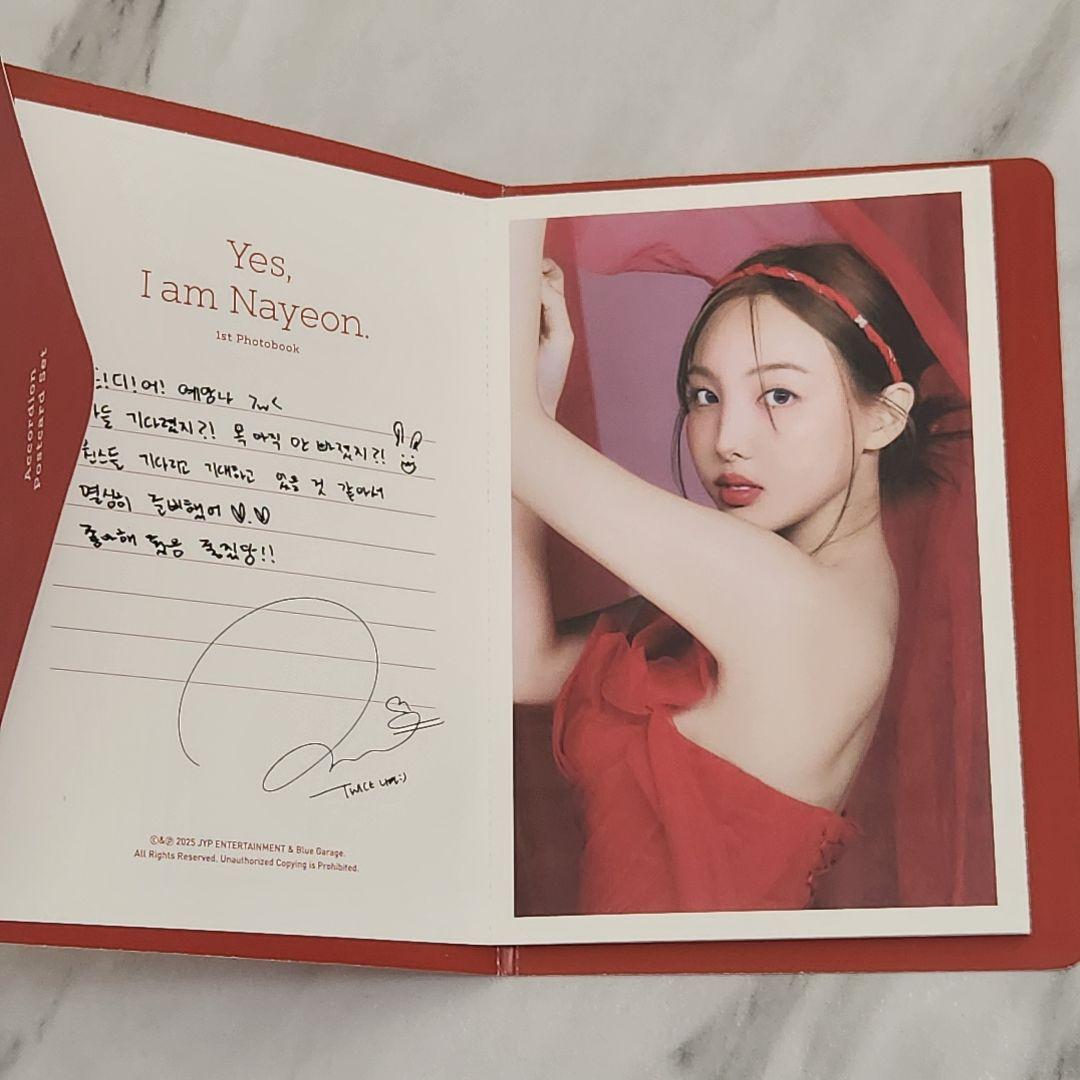 Yes,
I am Nayeon.
1st Photobook
!디!어! 예압나
들 기다렸지?! 목 아직 안 빠졌지?!
원스들 기다리고 기대하고 있을 것 같아서
열심히 준비했어 ♡.♡
좋아해 줬음 좋겠당!!
TWICE 나연:)
©&℗ 2025 JYP ENTERTAINMENT & Blue Garage.
All Rights Reserved. Unauthorized Copying is Prohibited.
Accordion
Postcard Set